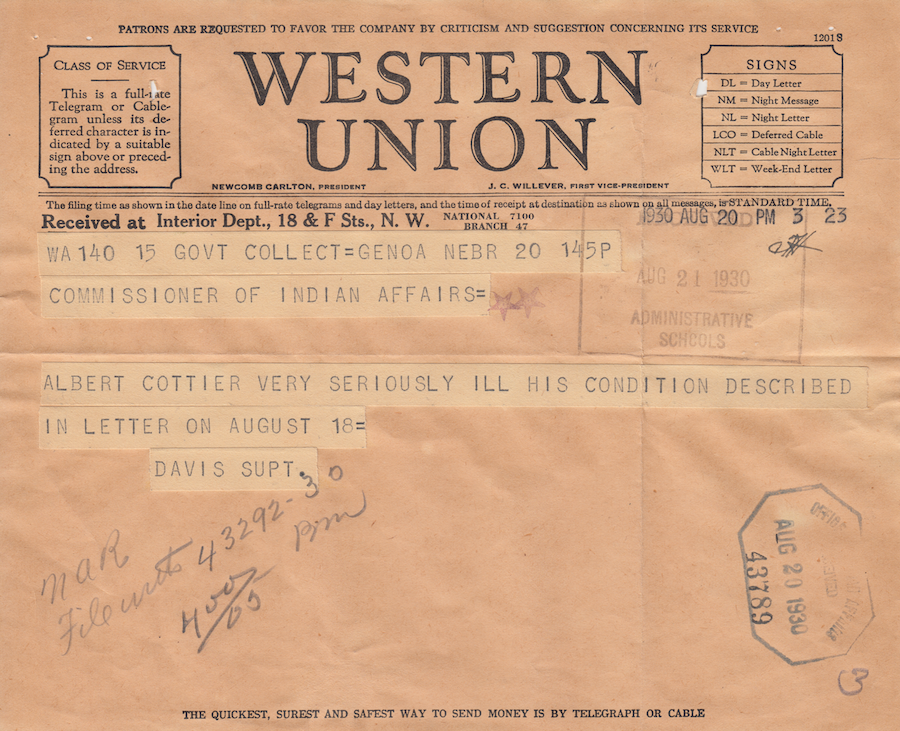 PATRONS ARE REQUESTED TO FAVOR THE COMPANY BY CRITICISM AND SUGGESTION CONCERNING ITS SERVICE
1201S
CLASS OF SERVICE
This is a full-rate
Telegram or Cable-
gram unless its de-
ferred character is in-
dicated by a suitable
sign above or preced-
ing the address.
WESTERN
UNION
NEWCOMB CARLTON, PRESIDENT
J. C. WILLEVER, FIRST VICE-PRESIDENT
SIGNS
DL = Day Letter
NM = Night Message
NL = Night Letter
LCO = Deferred Cable
NLT = Cable Night Letter
WLT = Week-End Letter
The filing time as shown in the date line on full-rate telegrams and day letters, and the time of receipt at destination as shown on all messages, is STANDARD TIME.
Received at Interior Dept., 18 & F Sts., N. W. NATIONAL 7100
BRANCH 47
1930 AUG 20 PM 3 23
WA140 15 GOVT COLLECT=GENOA NEBR 20 145P
COMMISSIONER OF INDIAN AFFAIRS=
AUG 21 1930
ADMINISTRATIVE
SCHOOLS
ALBERT COTTIER VERY SERIOUSLY ILL HIS CONDITION DESCRIBED
IN LETTER ON AUGUST 18=
DAVIS SUPT.
File with 43292-30
400/
/05
OFFICE
AUG 20 1930
43789
3
THE QUICKEST, SUREST AND SAFEST WAY TO SEND MONEY IS BY TELEGRAPH OR CABLE